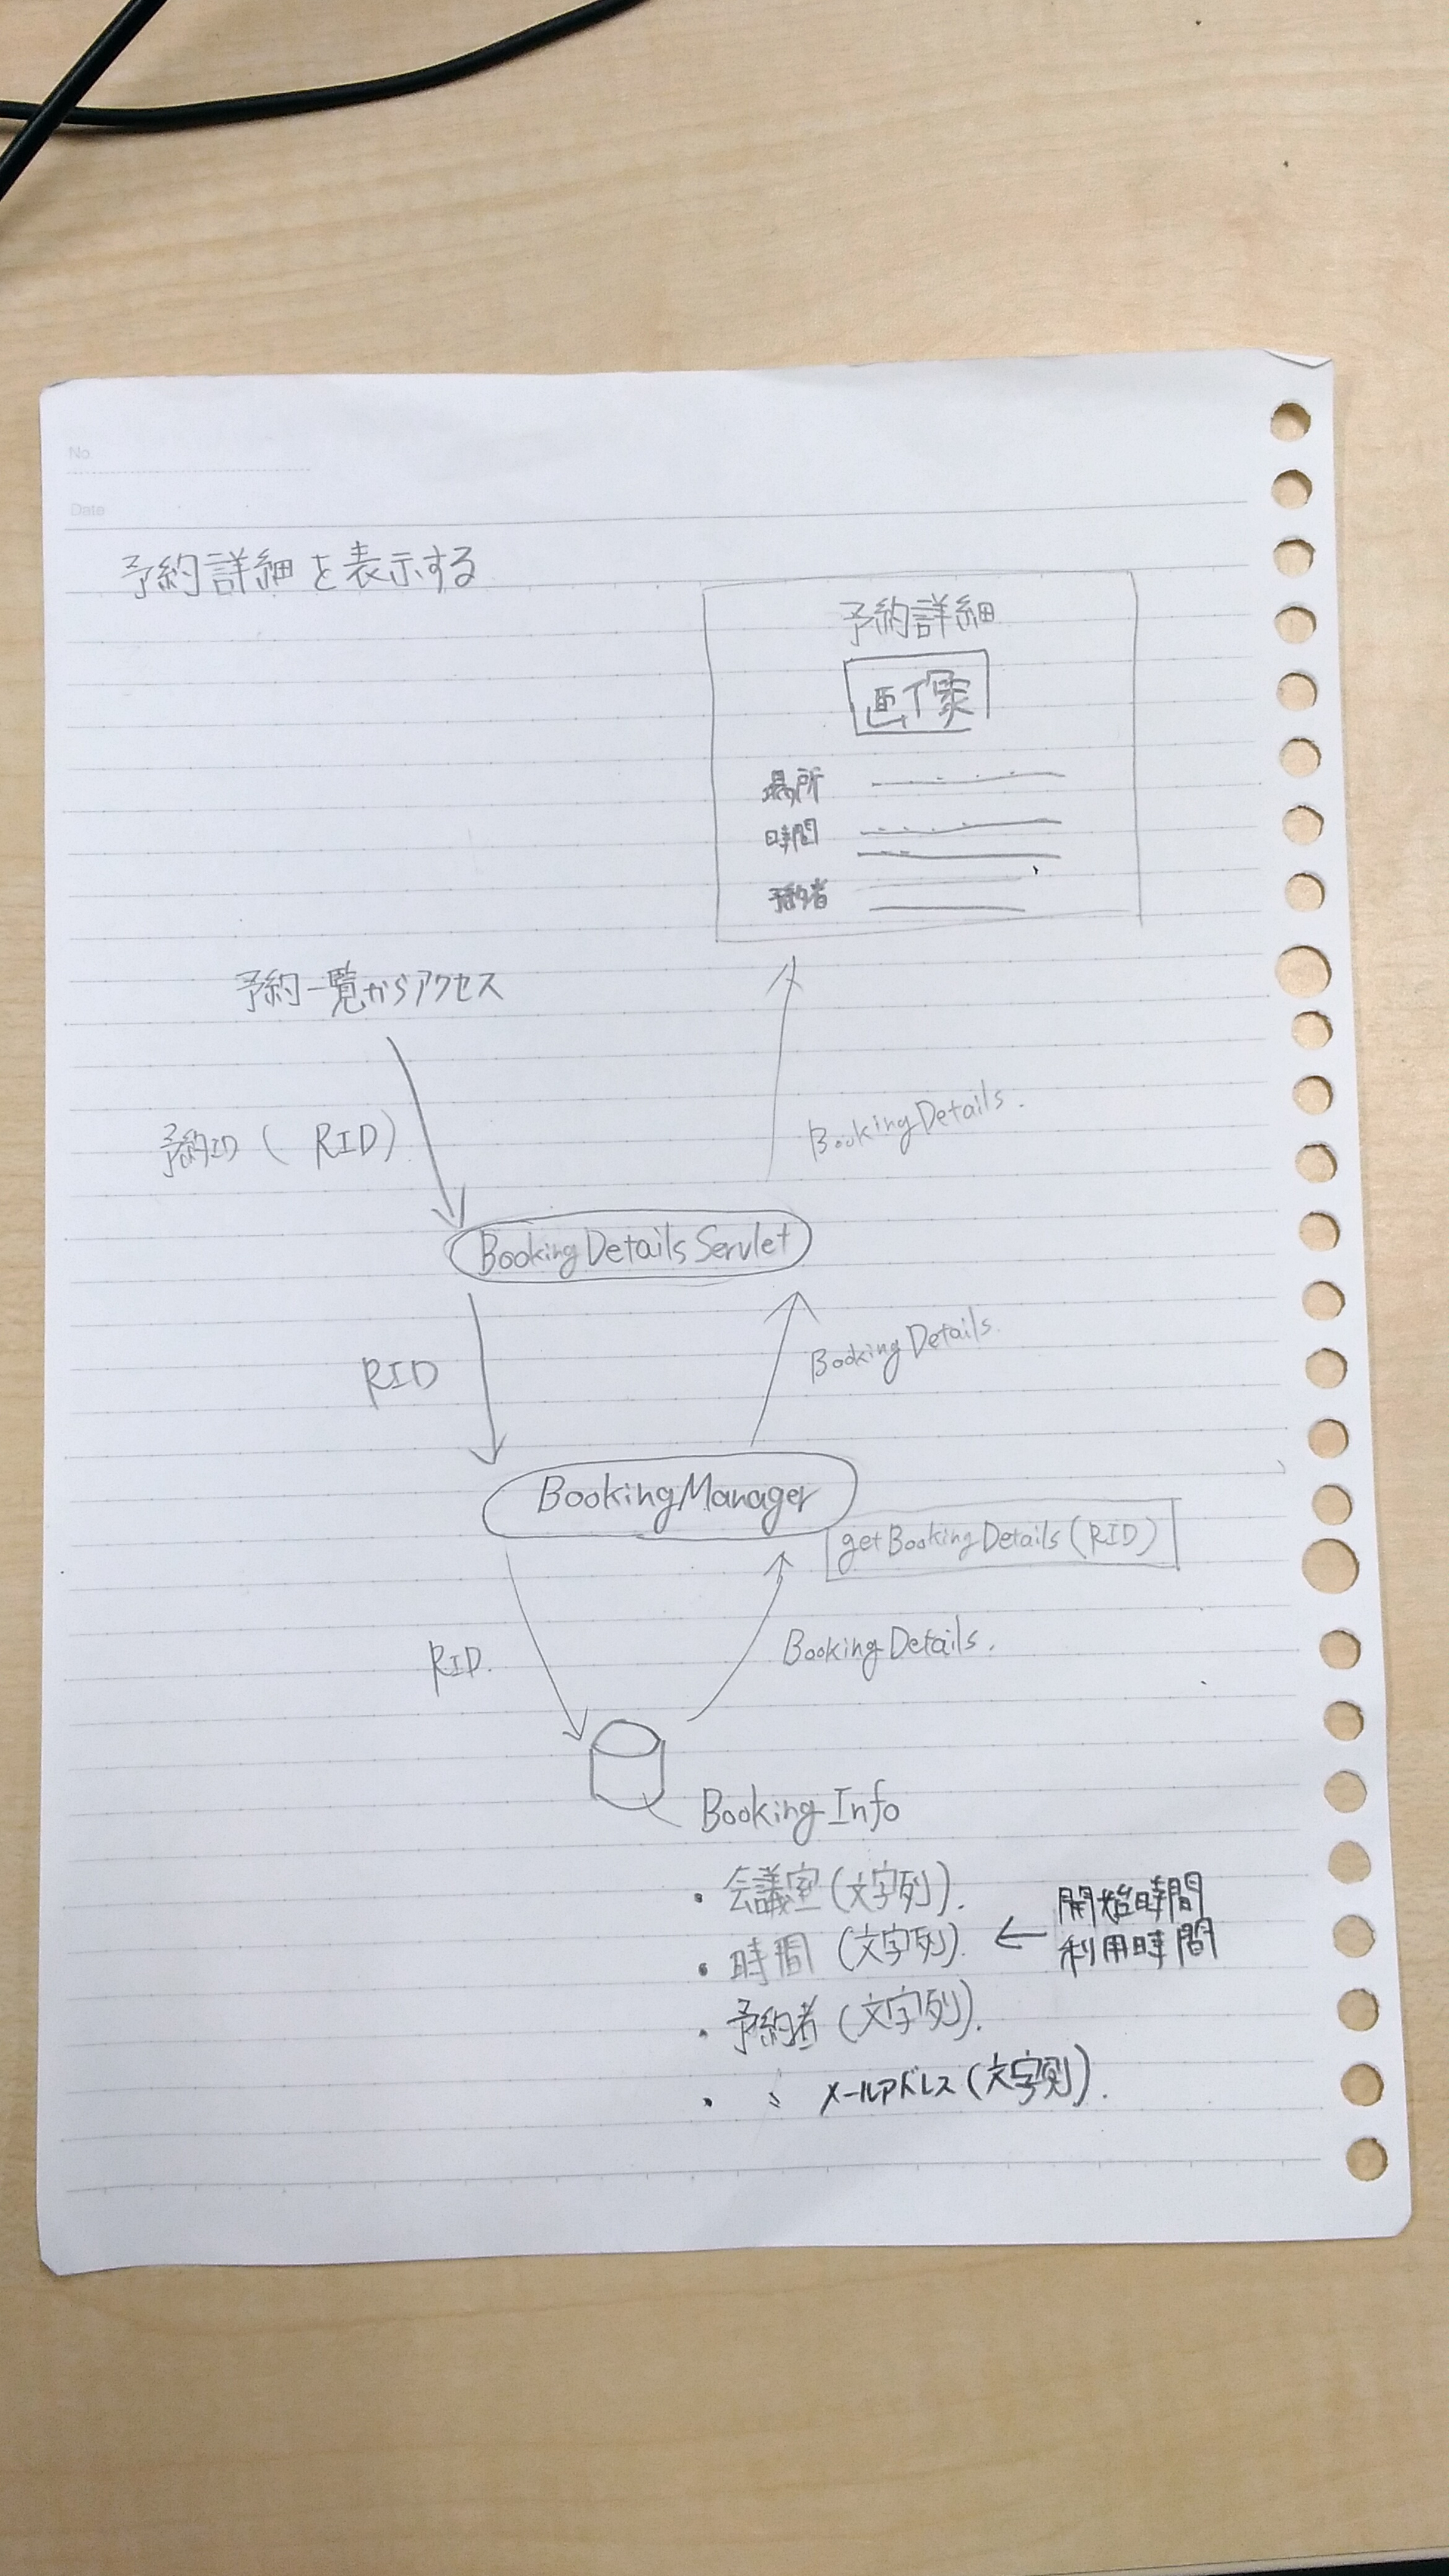 No.
Date
予約詳細を表示する
予約詳細
画像
場所
時間
予約者
予約一覧からアクセス
予約ID ( RID)
BookingDetails.
BookingDetailsServlet
RID
BookingDetails.
BookingManager
getBookingDetails(RID)
RID.
BookingDetails.
BookingInfo
・会議室(文字列).
・時間(文字列). ← 開始時間
利用時間
・予約者(文字列).
・ 〃 メールアドレス(文字列).